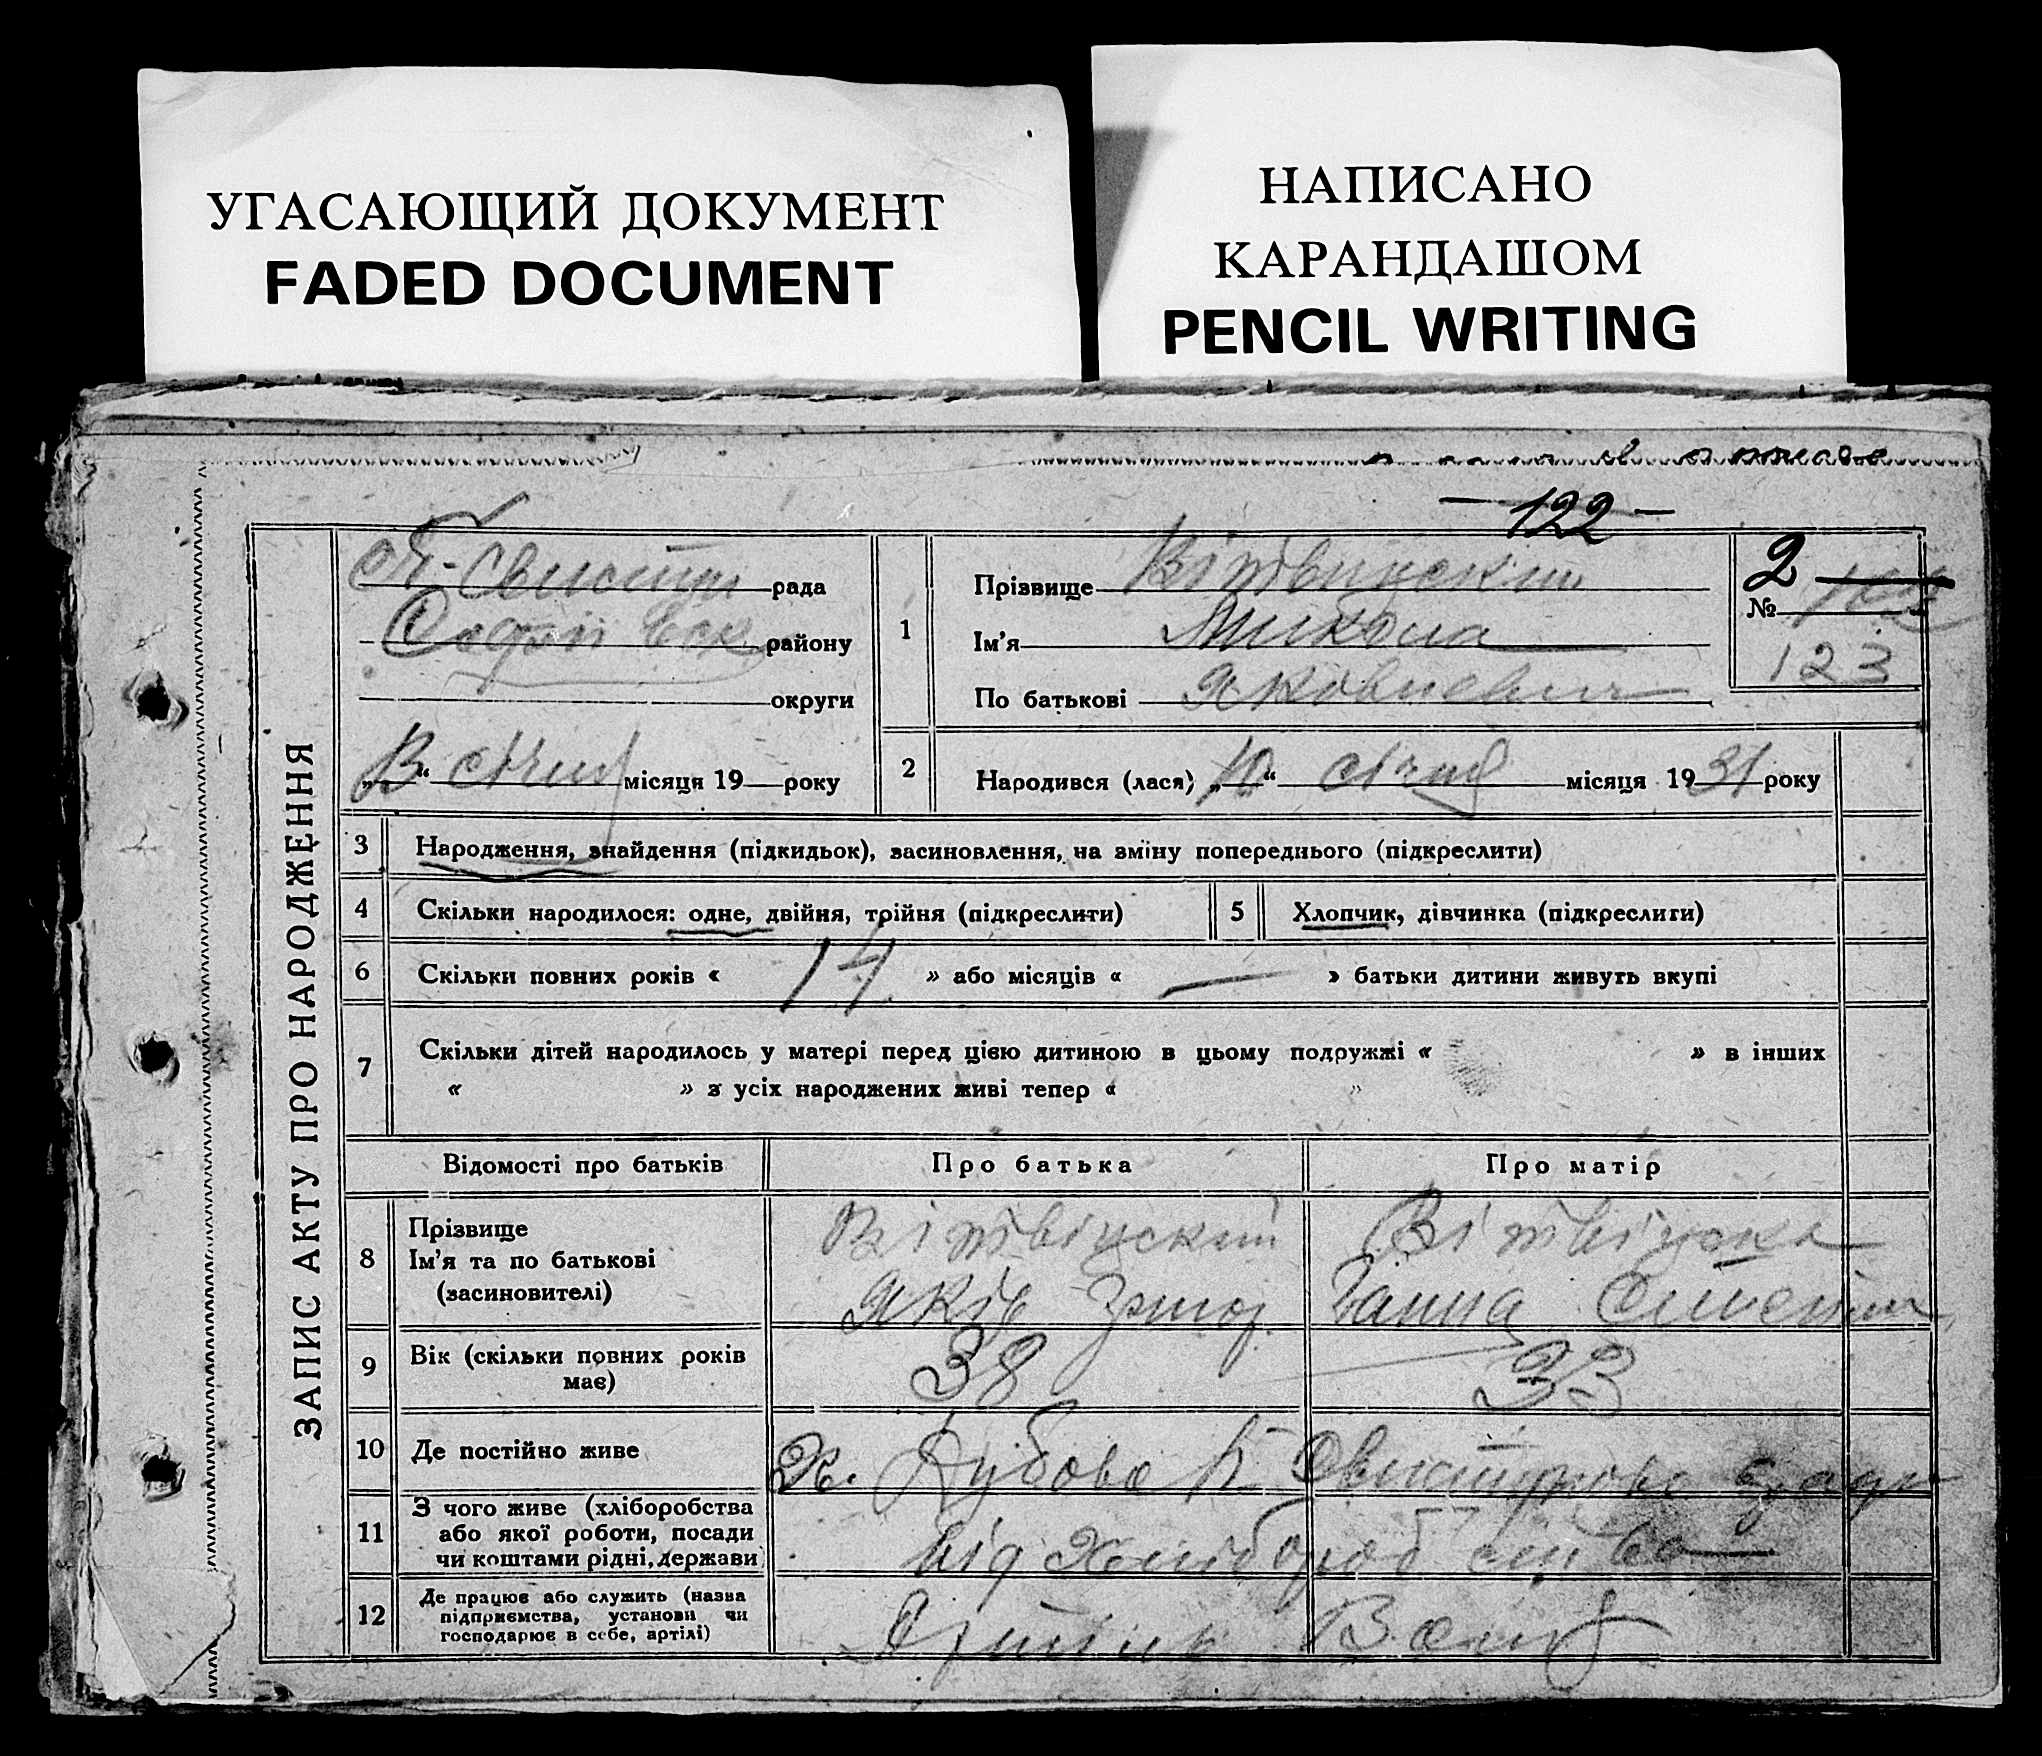 УГАСАЮЩИЙ ДОКУМЕНТ
FADED DOCUMENT
НАПИСАНО
КАРАНДАШОМ
PENCIL WRITING
- 122 -
ЗАПИС АКТУ ПРО НАРОДЖЕННЯ
рада
району
округи
місяця 19 року
1 Прізвище Вітвицский
Ім'я Микола
По батькові Яковлевич
2
№
123
2 Народився (лася) „10“ січня місяця 1931 року
3 Народження, знайдення (підкидьок), засиновлення, на зміну попереднього (підкреслити)
4 Скільки народилося: одне, двійня, трійня (підкреслити) 5 Хлопчик, дівчинка (підкреслити)
6 Скільки повних років « 14 » або місяців « — » батьки дитини живуть вкупі
7 Скільки дітей народилось у матері перед цією дитиною в цьому подружжі « » в інших
« » з усіх народжених живі тепер « »
Відомості про батьків Про батька Про матір
8 Прізвище
Ім'я та по батькові
(засиновителі)
Вітвіцский
Яків
Вітвіцска
Ганна
9 Вік (скільки повних років
має)
38 33
10 Де постійно живе
Х. Дубова
11 З чого живе (хліборобства
або якої роботи, посади
чи коштами рідні, держави)
від хліборобства
12 Де працює або служить (назва
підприємства, установи чи
господарює в себе, артілі)